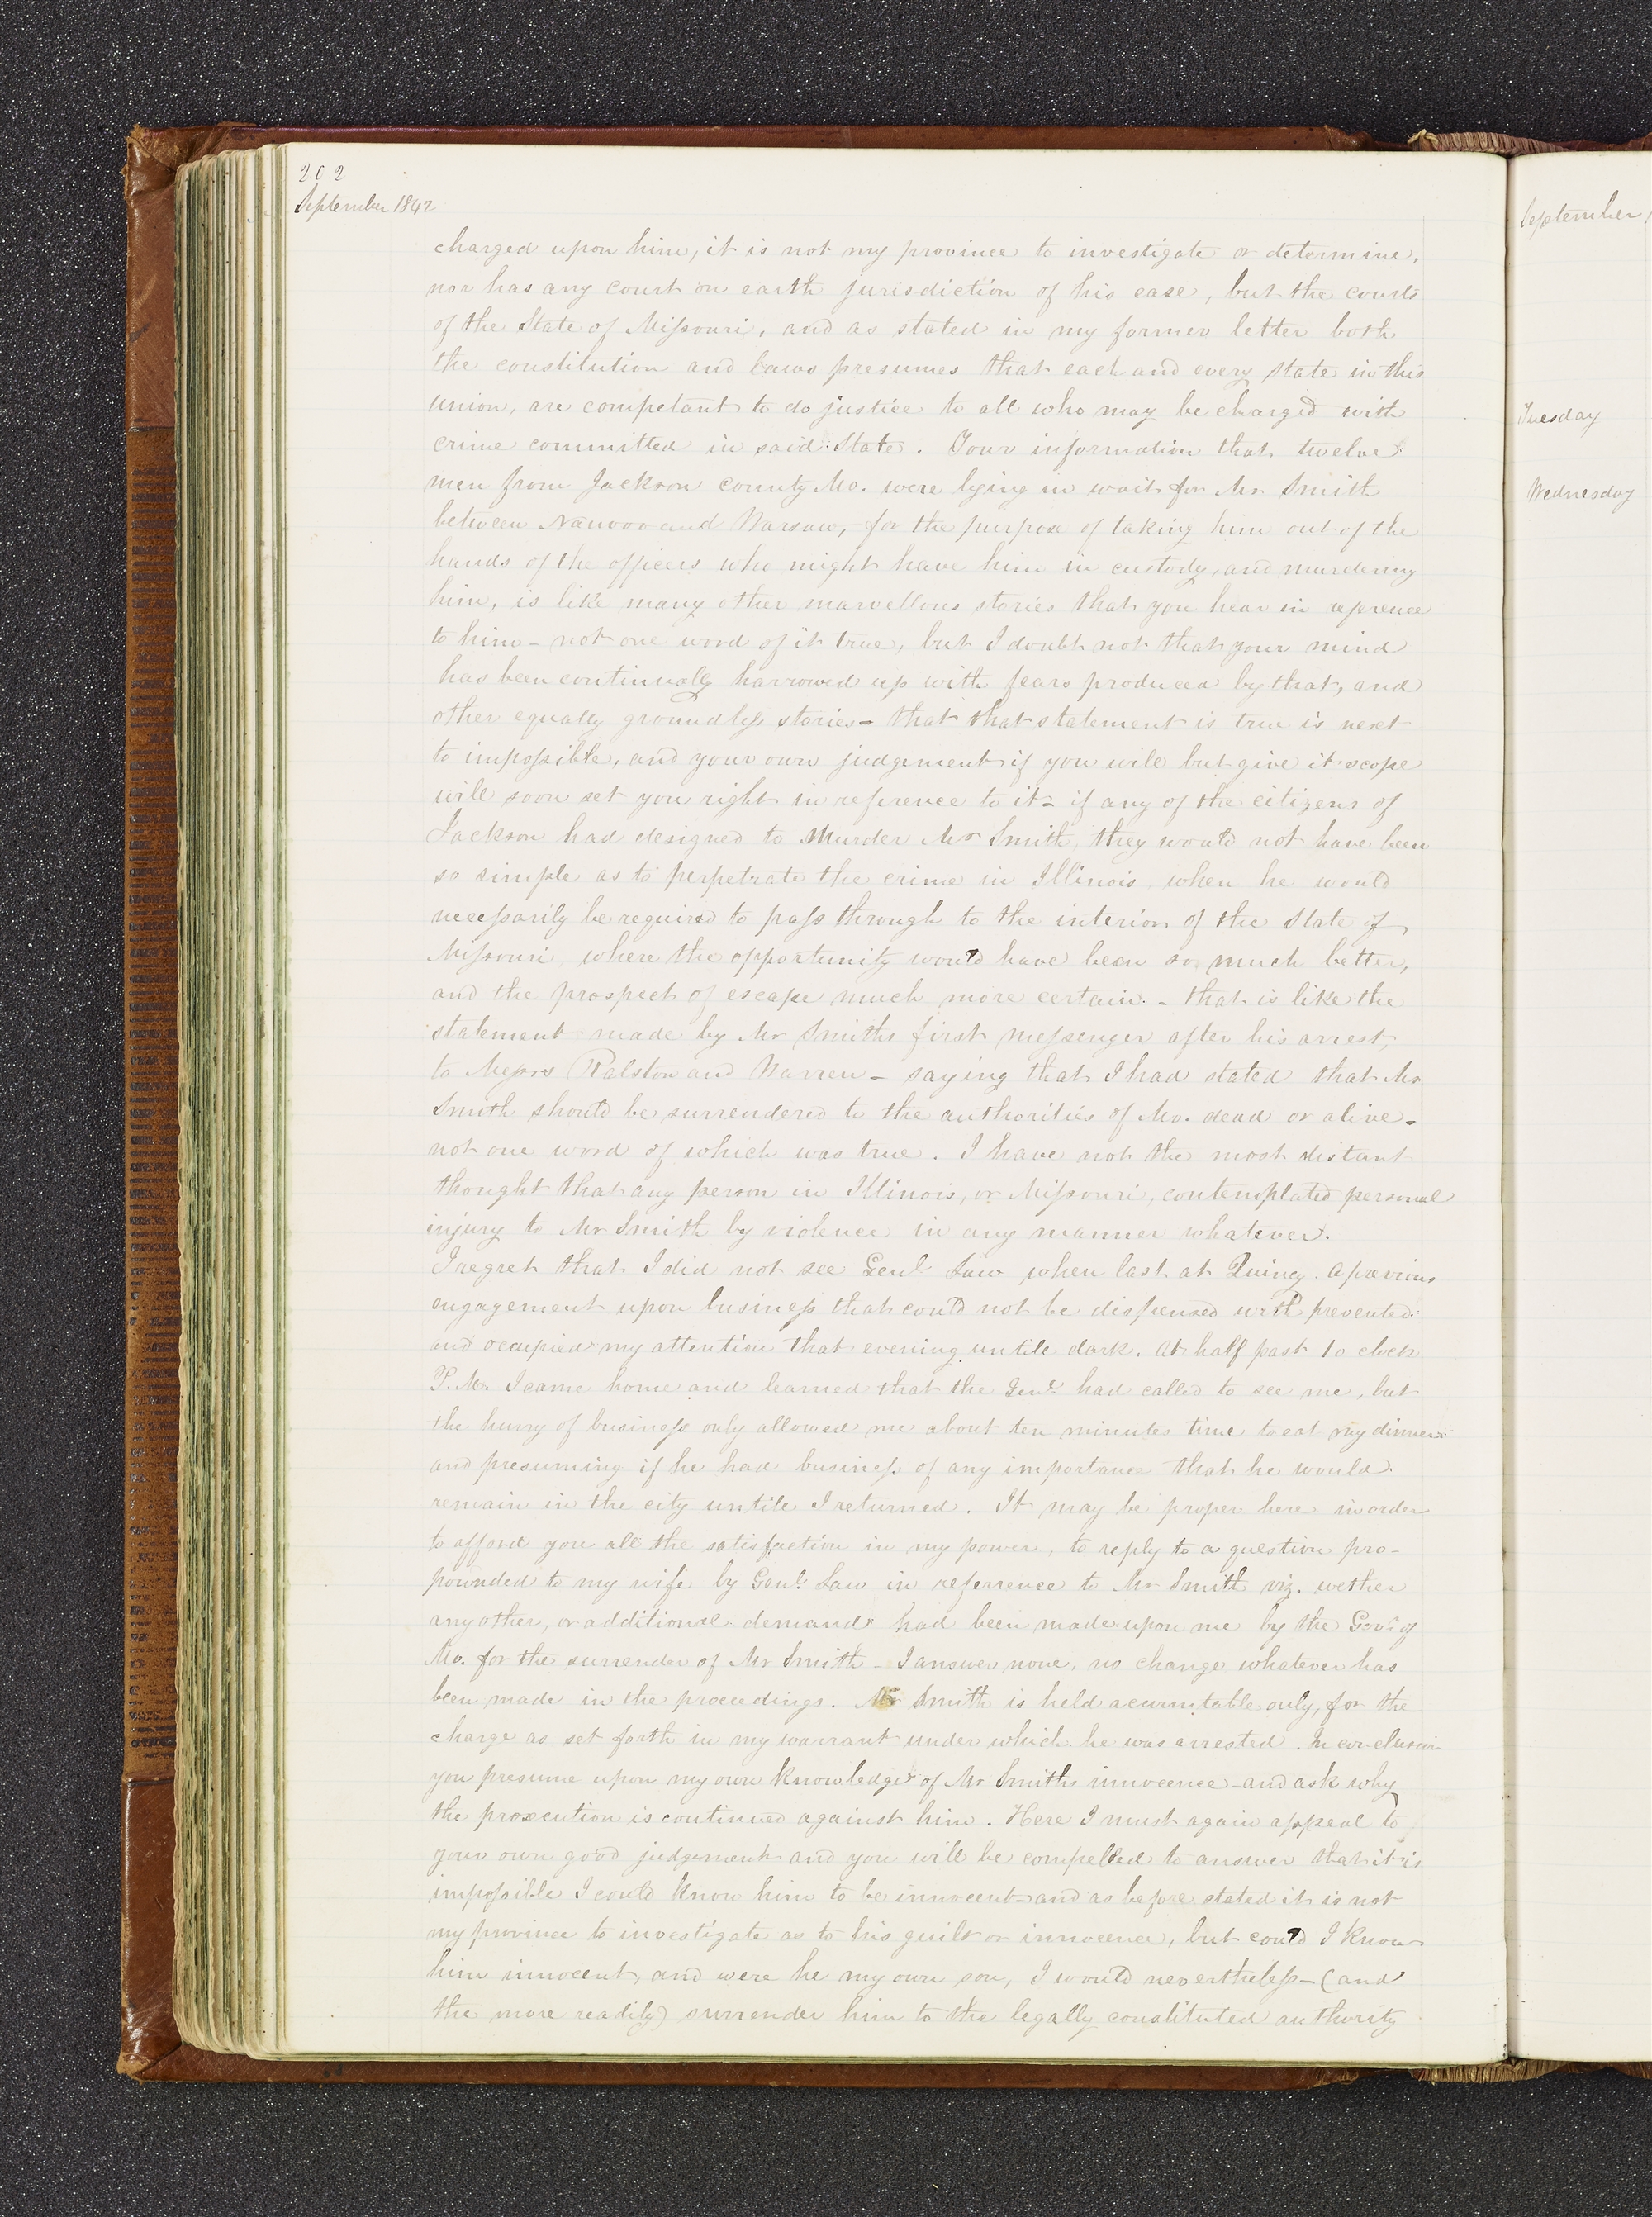 202
September 1842
charged upon him, it is not my province to investigate or determine,
nor has any court on earth jurisdiction of his case, but the courts
of the State of Missouri, and as stated in my former letter both
the constitution and laws presumes that each and every state in this
union, are competant to do justice to all who may be charged with
crime committed in said State. Your information that twelve
men from Jackson county Mo. were lying in wait for Mr Smith
between Nauvoo and Warsaw, for the purpose of taking him out of the
hands of the officers who might have him in custody, and murdering
him, is like many other marvellous stories that you hear in reference
to him - not one word of it true, but I doubt not that your mind
has been continually harrowed up with fears produced by that, and
other equally groundless stories - that that statement is true is next
to impossible, and your own judgement if you will but give it scope
will soon set you right in reference to it - if any of the citizens of
Jackson had designed to murder Mr Smith, they would not have been
so simple as to perpetrate the crime in Illinois when he would
necessarily be required to pass through to the interior of the State of
Missouri where the opportunity would have been so much better,
and the prospect of escape much more certain. - that is like the
statement made by Mr Smiths first messenger after his arrest,
to Messrs Ralston and Warren - saying that I had stated that Mr
Smith should be surrendered to the authorities of Mo. dead or alive -
not one word of which was true. I have not the most distant
thought that any person in Illinois, or Missouri, contemplated personal
injury to Mr Smith by violence in any manner whatever.
I regret that I did not see Genl. Law when last at Quincy. A previous
engagement upon business that could not be dispensed with prevented
and occupied my attention that evening untile dark. At half past 1 o clock
P.M. I came home and learned that the Genl. had called to see me, but
the hurry of business only allowed me about ten minutes time to eat my dinner
and presuming if he had business of any importance that he would
remain in the city untile I returned. It may be proper here in order
to afford you all the satisfaction in my power, to reply to a question pro-
pounded to my wife by Genl. Law in referrence to Mr Smith viz. wether
any other, or additional demand had been made upon me by the Govr. of
Mo. for the surrender of Mr Smith - I answer none, no change whatever has
been made in the proceedings. Mr Smith is held accountable only, for the
charge as set forth in my warrant under which he was arrested. In conclusion
you presume upon my own knowledge of Mr Smiths innocence - and ask why
the prosecution is continued against him. Here I must again appeal to
your own good judgement and you will be compelled to answer that it is
impossible I could know him to be innocent - and as before stated it is not
my province to investigate as to his guilt or innocence, but could I know
him innocent, and were he my own son, I would nevertheless - (and
the more readily) surrender him to the legally constituted authority
September
Tuesday
Wednesday